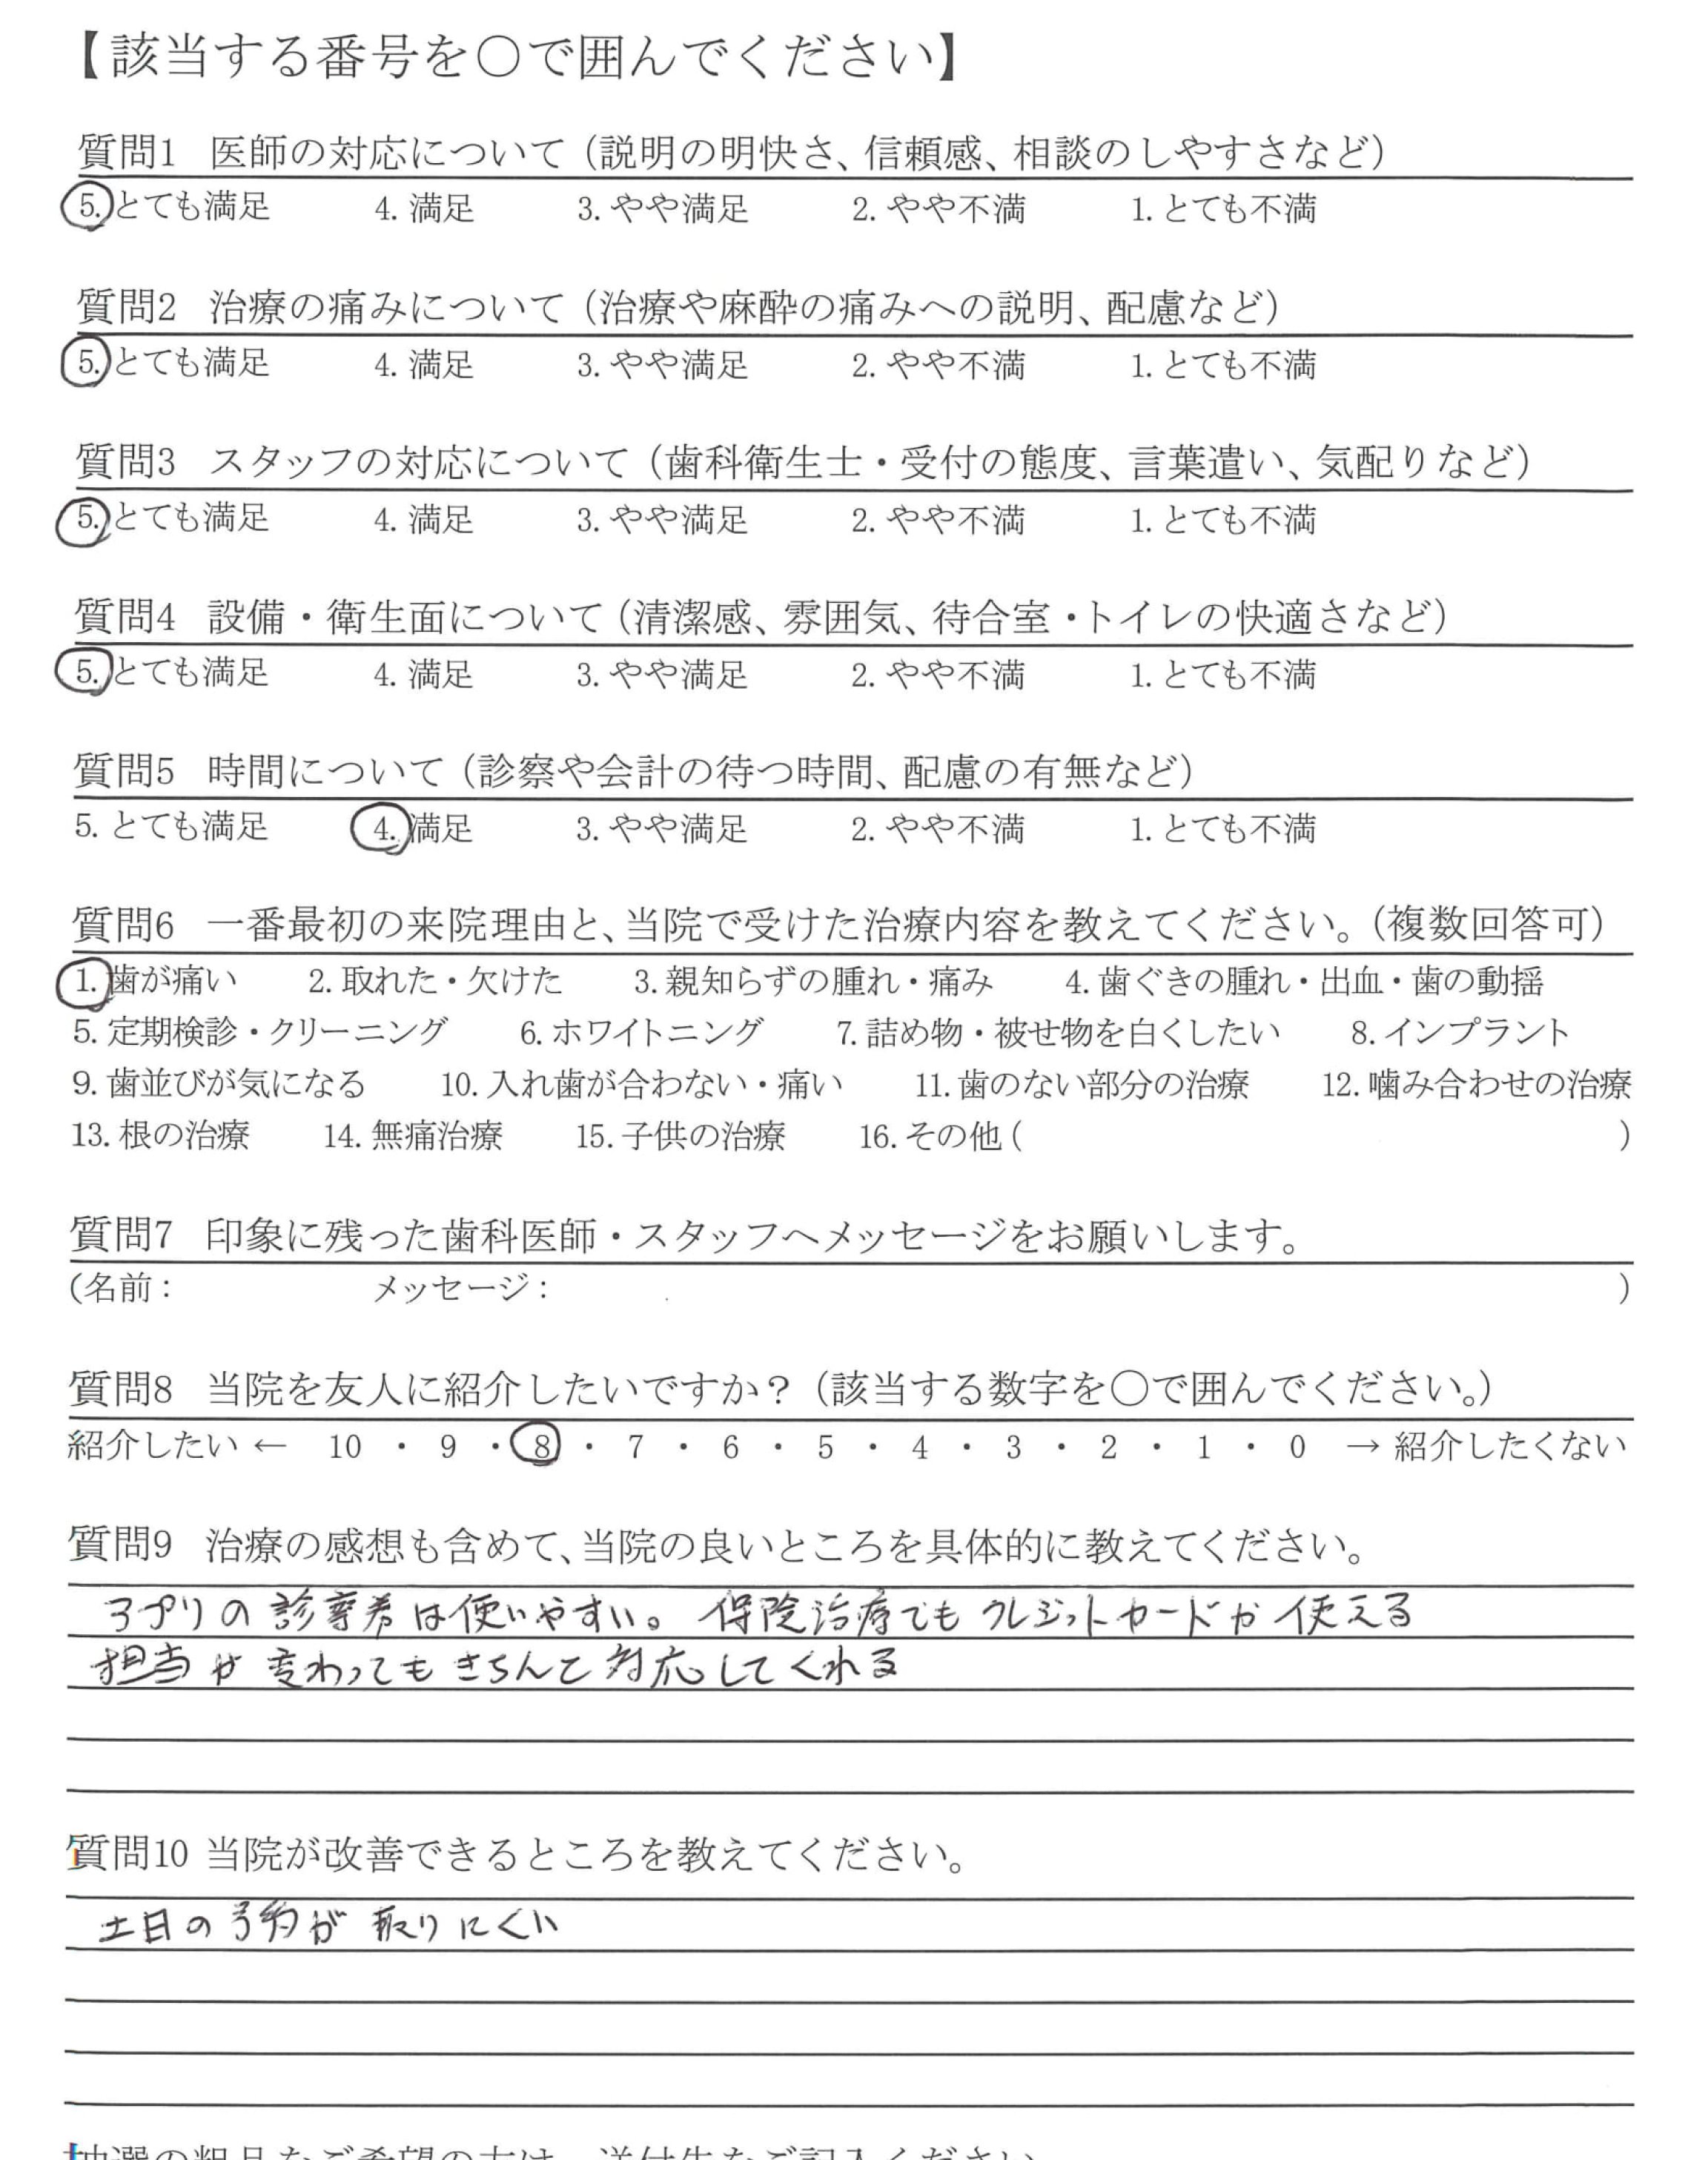 【該当する番号を〇で囲んでください】
質問1 医師の対応について（説明の明快さ、信頼感、相談のしやすさなど）
5. とても満足 4. 満足 3. やや満足 2. やや不満 1. とても不満
質問2 治療の痛みについて（治療や麻酔の痛みへの説明、配慮など）
5. とても満足 4. 満足 3. やや満足 2. やや不満 1. とても不満
質問3 スタッフの対応について（歯科衛生士・受付の態度、言葉遣い、気配りなど）
5. とても満足 4. 満足 3. やや満足 2. やや不満 1. とても不満
質問4 設備・衛生面について（清潔感、雰囲気、待合室・トイレの快適さなど）
5. とても満足 4. 満足 3. やや満足 2. やや不満 1. とても不満
質問5 時間について（診察や会計の待つ時間、配慮の有無など）
5. とても満足 4. 満足 3. やや満足 2. やや不満 1. とても不満
質問6 一番最初の来院理由と、当院で受けた治療内容を教えてください。（複数回答可）
1. 歯が痛い 2. 取れた・欠けた 3. 親知らずの腫れ・痛み 4. 歯ぐきの腫れ・出血・歯の動揺
5. 定期検診・クリーニング 6. ホワイトニング 7. 詰め物・被せ物を白くしたい 8. インプラント
9. 歯並びが気になる 10. 入れ歯が合わない・痛い 11. 歯のない部分の治療 12. 噛み合わせの治療
13. 根の治療 14. 無痛治療 15. 子供の治療 16. その他（ ）
質問7 印象に残った歯科医師・スタッフへメッセージをお願いします。
（名前： メッセージ： ）
質問8 当院を友人に紹介したいですか？（該当する数字を〇で囲んでください。）
紹介したい ← 10 ・ 9 ・ 8 ・ 7 ・ 6 ・ 5 ・ 4 ・ 3 ・ 2 ・ 1 ・ 0 → 紹介したくない
質問9 治療の感想も含めて、当院の良いところを具体的に教えてください。
アプリの診察券は使いやすい。保険治療でもクレジットカードが使える
担当が変わってもきちんと対応してくれる
質問10 当院が改善できるところを教えてください。
土日の予約が取りにくい
抽選の粗品をご希望の方は、送付先をご記入ください